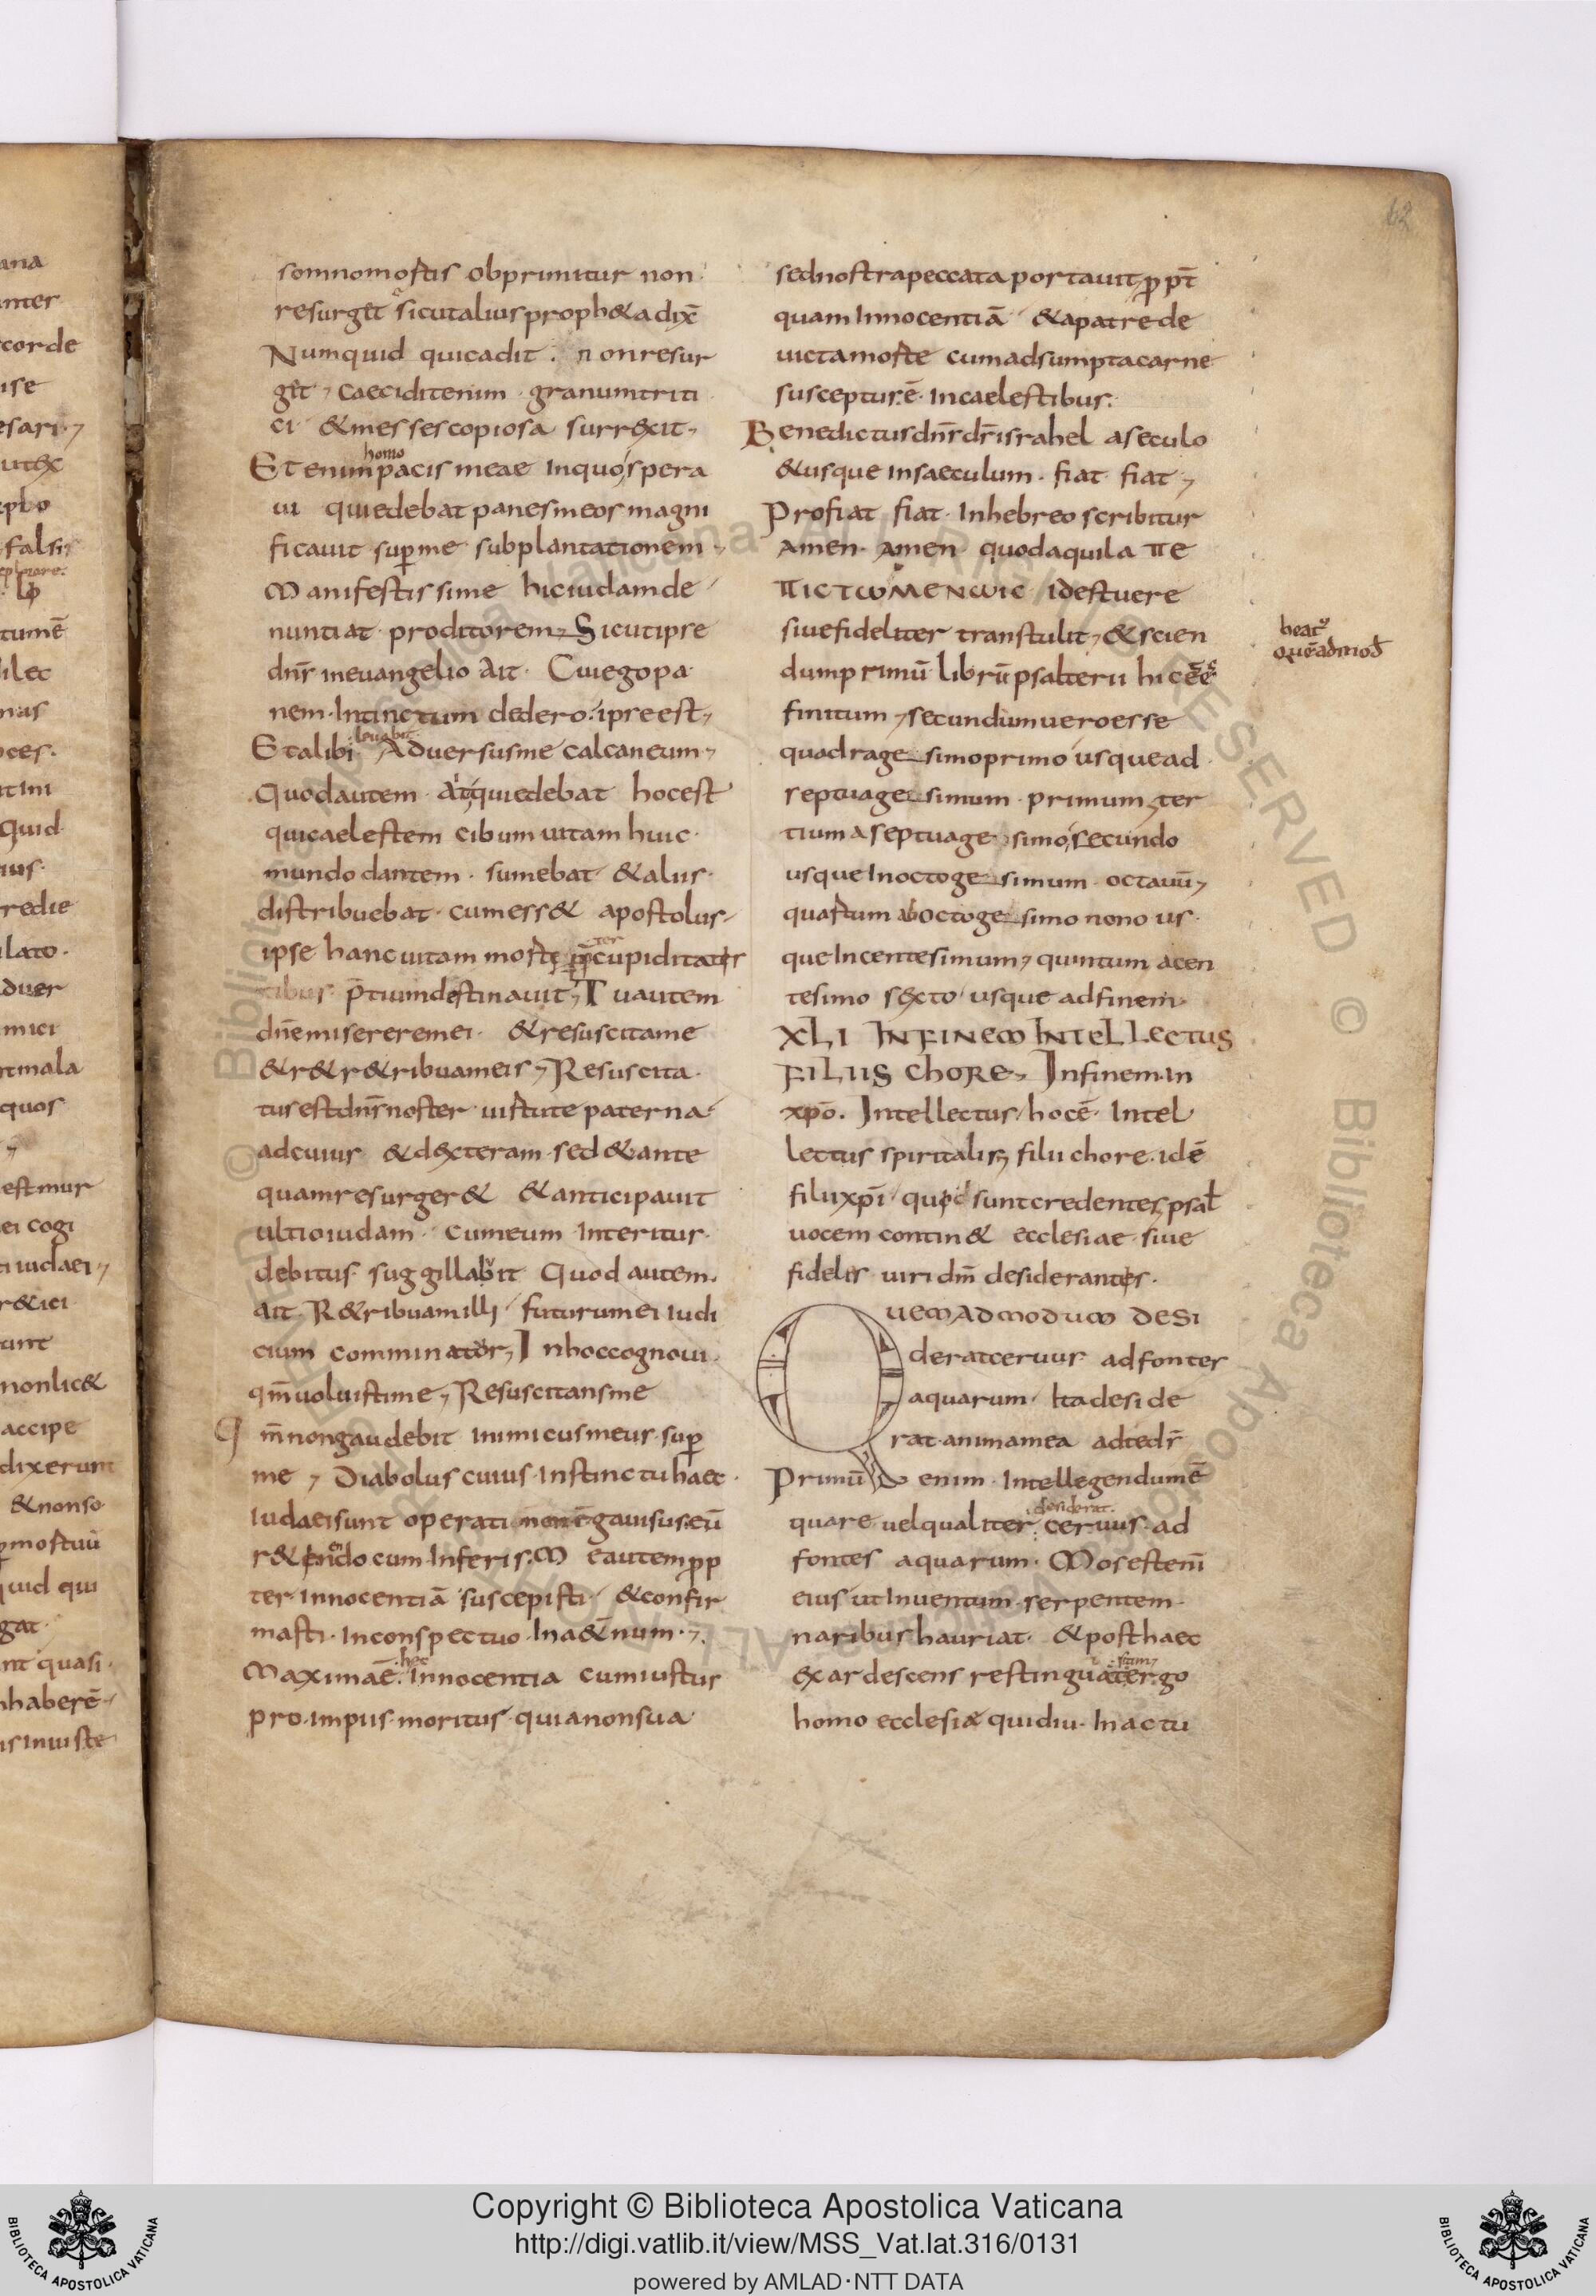 62
somnomortis obprimitur non
resurget sicutaliusproph&adix̄
Numquid quicadit. nonresur
get, caeciditenim granumtriti
ci &messescopiosa surrexit,
homo
Etenimpacis meae Inquospera
ui quiedebatpanesmeosmagni
ficauit sup̄me subplantationem
Manifestissime hiciudamde
nuntiat proditorem, Sicutipse
dnr̄ ineuangelio Ait. Cuiegopa
nem. Intinctum dedero. ipseest,
leuabit
Etalibi Aduersusme calcaneum,
Quodautem quiedebat hocest
quicaelestem cibum uitam huic
mundo dantem. sumebat &aliis
distribuebat. cumess& apostolus,
ipse hanc uitam morte cupiditater
tibus destinauit, Tuautem
dn̄emiserermei. &resuscitame
&r&r&ribuameis, Resuscita
tusestdnr̄noster uirtutepaterna
adcuius &dexteram sed&ante
quamresurger& &anticipauit
ultioiudam. cumeum Interitus
debitus suggillabit Quod autem
ait R&ribuamilli futurumei Iudi
cium comminator, Inhoccognoui
qm̄uoluistime, Resuscitansme
Qm̄nongaudebit inimicusmeus sup̄
me, Diabolus cuius Instinctuhaec
Iudaeisunt operati
cum Inferis. Meautem prop
ter Innocentiā suscepisti &confir
masti. Inconspectuo Ina&̄num.
hec
Maximaē. Innocentia cumiustus
pro impiis moritus quianonsua
sednostrapeccataportauit, p̄pt̄
quam Innocentiā &apatrede
uictamorte cumadsumptacarne
suscepturē. Incaelestibus.
Benedictusdnr̄dr̄israhel aseculo
&usque Insaeculum. fiat fiat,
Profiat fiat Inhebreo scribitur
amen. amen quodaquila πε
πιςτωμενωις idestuere
siuefideliter transtulit, &scien
dumprimū librūpsalterii hic
finitum, secundumueroesse
quadragesimoprimo usquead
septuagesimum. primum, ter
tium a septuagesimosecundo
usqueInoctogesimum octauū,
quartum aboctogesimo nono us
queIncentesimum, quintum acen
tesimo sexto usque adfinem.
XLI INFINEM INTELLECTUS
FILIIS CHORE, Infinem.in
xpō. Intellectus hocē. Intel
lectus spiritalis, filii chore. idē
filiixpī quod suntcredentes, psal̄
uocem contin& ecclesiae siue
fidelis uiri dm̄ desiderantis.
QUEMADMODUM DESI
deratceruus adfontes
aquarum. Itadeside
rat animamea adtedr̄
Primū enim. Intellegendumē
desiderat
quare uelqualiter ceruus ad
fontes aquarum. Mosesteni̅
eius utInuentum serpentem
naribushauriat. &posthaec
sitim
exardescens restinguatergo
homo ecclesiae quidiu Inactu
beat᷒
quēadmod̄
Copyright © Biblioteca Apostolica Vaticana
http://digi.vatlib.it/view/MSS_Vat.lat.316/0131
powered by AMLAD·NTT DATA
BIBLIOTECA APOSTOLICA VATICANA
BIBLIOTECA APOSTOLICA VATICANA